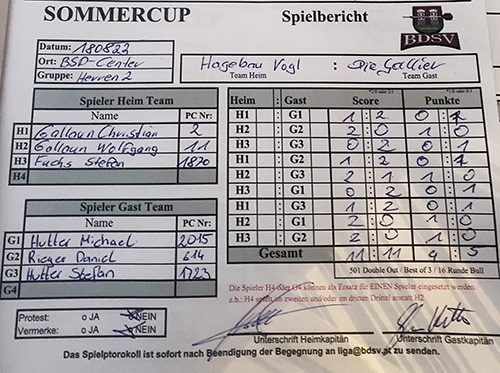 SOMMERCUP Spielbericht BDSV
Datum: 180822
Ort: BSD-Center
Gruppe: Herren 2
Hagebau Vogl : Die Gallier
Team Heim Team Gast
Spieler Heim Team
Name PC Nr:
H1 Galloun Christian 2
H2 Galloun Wolfgang 11
H3 Fuchs Stefan 1870
H4
Spieler Gast Team
Name PC Nr:
G1 Hutter Michael 2015
G2 Rieger Daniel 614
G3 Hutter Stefan 1723
G4
Protest: o JA NEIN
Vermerke: o JA NEIN
Heim : Gast Score Punkte
H1 : G1 1 : 2 0 : 1
H2 : G2 2 : 0 1 : 0
H3 : G3 0 : 2 0 : 1
H1 : G2 1 : 2 0 : 1
H2 : G3 2 : 1 1 : 0
H3 : G1 0 : 2 0 : 1
H1 : G3 1 : 2 0 : 1
H2 : G1 2 : 0 1 : 0
H3 : G2 2 : 0 1 : 0
Gesamt 11 : 11 4 : 5
501 Double Out / Best of 3 / 16.Runde Bull
Die Spieler H4 oder G4 können als Ersatz für EINEN Spieler eingesetzt werden.
z.b.: H4 spielt im zweiten und/oder im dritten Drittel anstatt H2
Unterschrift Heimkapitän Unterschrift Gastkapitän
Das Spielptorokoll ist sofort nach Beendigung der Begegnung an liga@bdsv.at zu senden.